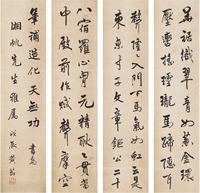 華裾織翠青如蔥金環
壓轡搖玲瓏馬蹄隱耳
聲隆隆入門下馬氣如虹云是
東京才子文章鉅公二十
八宿羅心胸元精耿耿貫當
中殿前作賦聲摩空
筆補造化天無功 書為
湘帆先生雅屬 黃